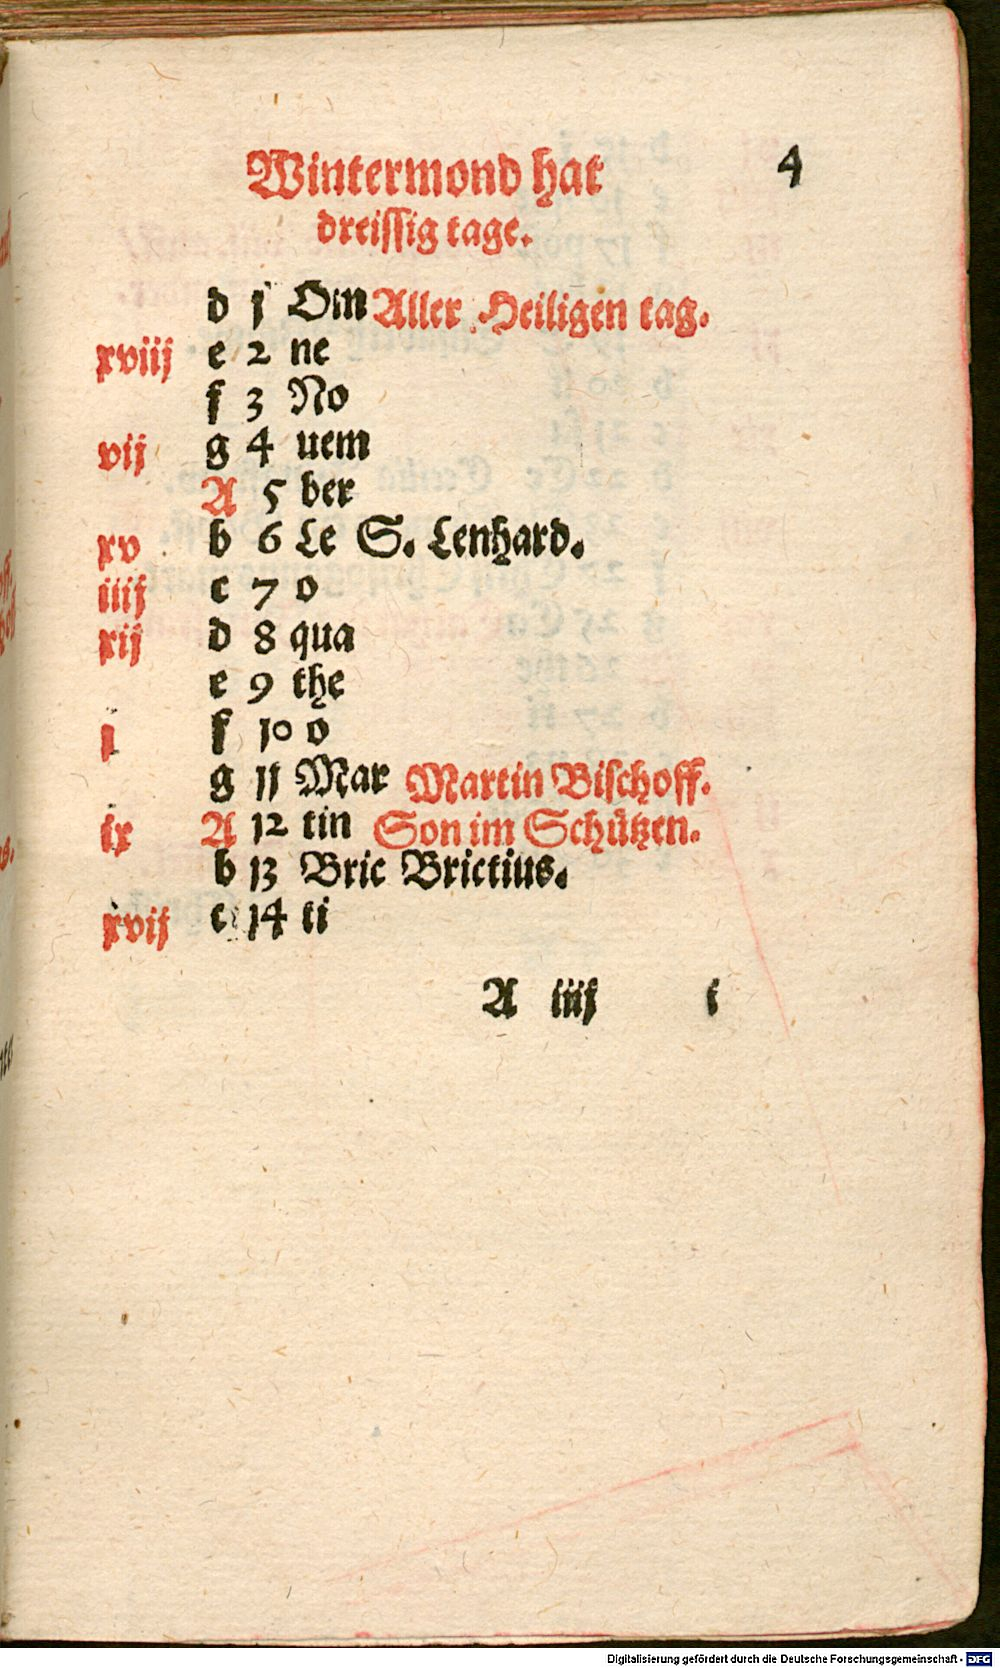 4
Wintermond hat
dreissig tage.
d 1 Om Aller Heiligen tag.
xviij e 2 ne
f 3 No
vij g 4 uem
A 5 ber
xv b 6 Le S. Lenhard.
iiij c 7 o
xij d 8 qua
e 9 the
i f 10 o
g 11 Mar Martin Bischoff.
ix A 12 tin Son im Schützen.
b 13 Bric Brictius.
xvij c 14 ti
A iiij
Digitalisierung gefördert durch die Deutsche Forschungsgemeinschaft - DFG